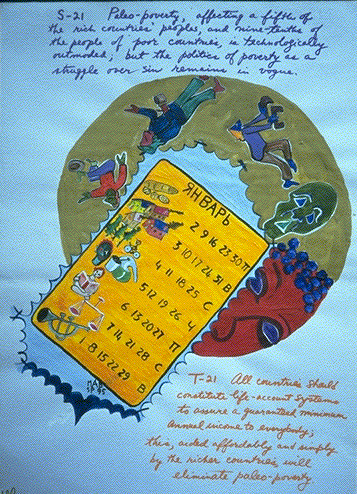 S-21 Paleo-poverty, affecting a fifth of
the rich countries' peoples, and nine-tenths of
the people of poor countries, is technologically
outmoded; but the politics of poverty as a
struggle over sin remains in vogue.
ЯНВАРЬ
2 9 16 23 30 П
3 10 17 24 31 В
4 11 18 25 С
5 12 19 26 Ч
6 13 20 27 П
7 14 21 28 С
1 8 15 22 29 В
T-21 All countries should
constitute life-account systems
to assure a guaranteed minimum
annual income to everybody;
this, aided affordably and simply
by the richer countries, will
eliminate paleo-poverty.